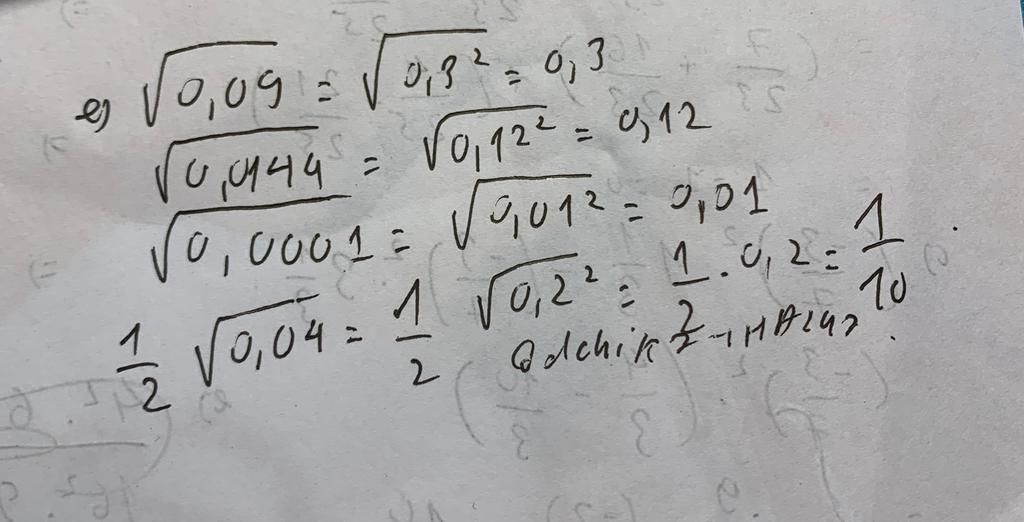 e) √0,09 = √0,3² = 0,3
√0,0144 = √0,12² = 0,12
√0,0001 = √0,01² = 0,01
1/2 √0,04 = 1/2 √0,2² = 1/2 · 0,2 = 1/10